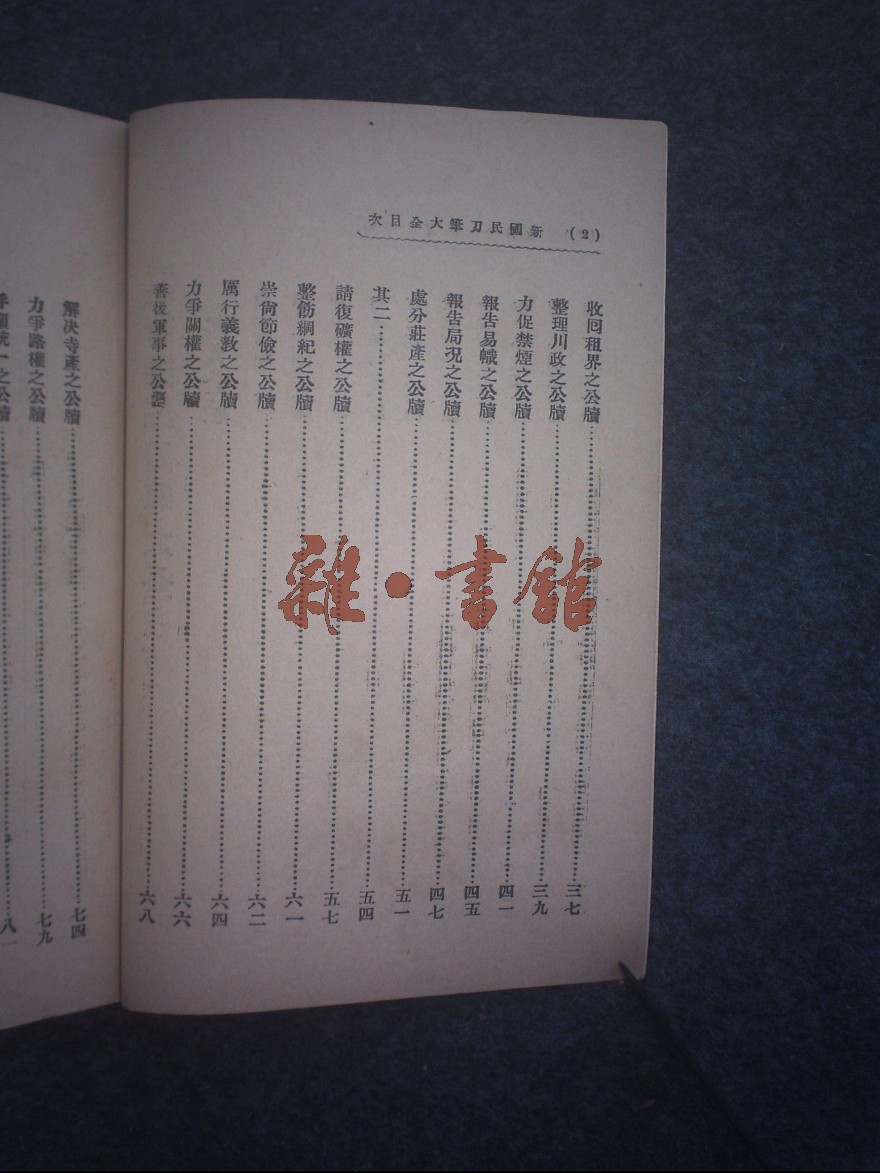 (2) 新國民刀筆大全目次
收回租界之公牘……三七
整理川政之公牘……三九
力促禁煙之公牘……四一
報告易幟之公牘……四五
報告局況之公牘……四七
處分莊產之公牘……五一
其二……五四
請復礦權之公牘……五七
整飭綱紀之公牘……六一
崇尙節儉之公牘……六二
厲行義教之公牘……六四
力爭關權之公牘……六六
善後軍事之公牘……六八
解決寺產之公牘……七四
力爭路權之公牘……七九
統一之公牘……八一
雜·書館